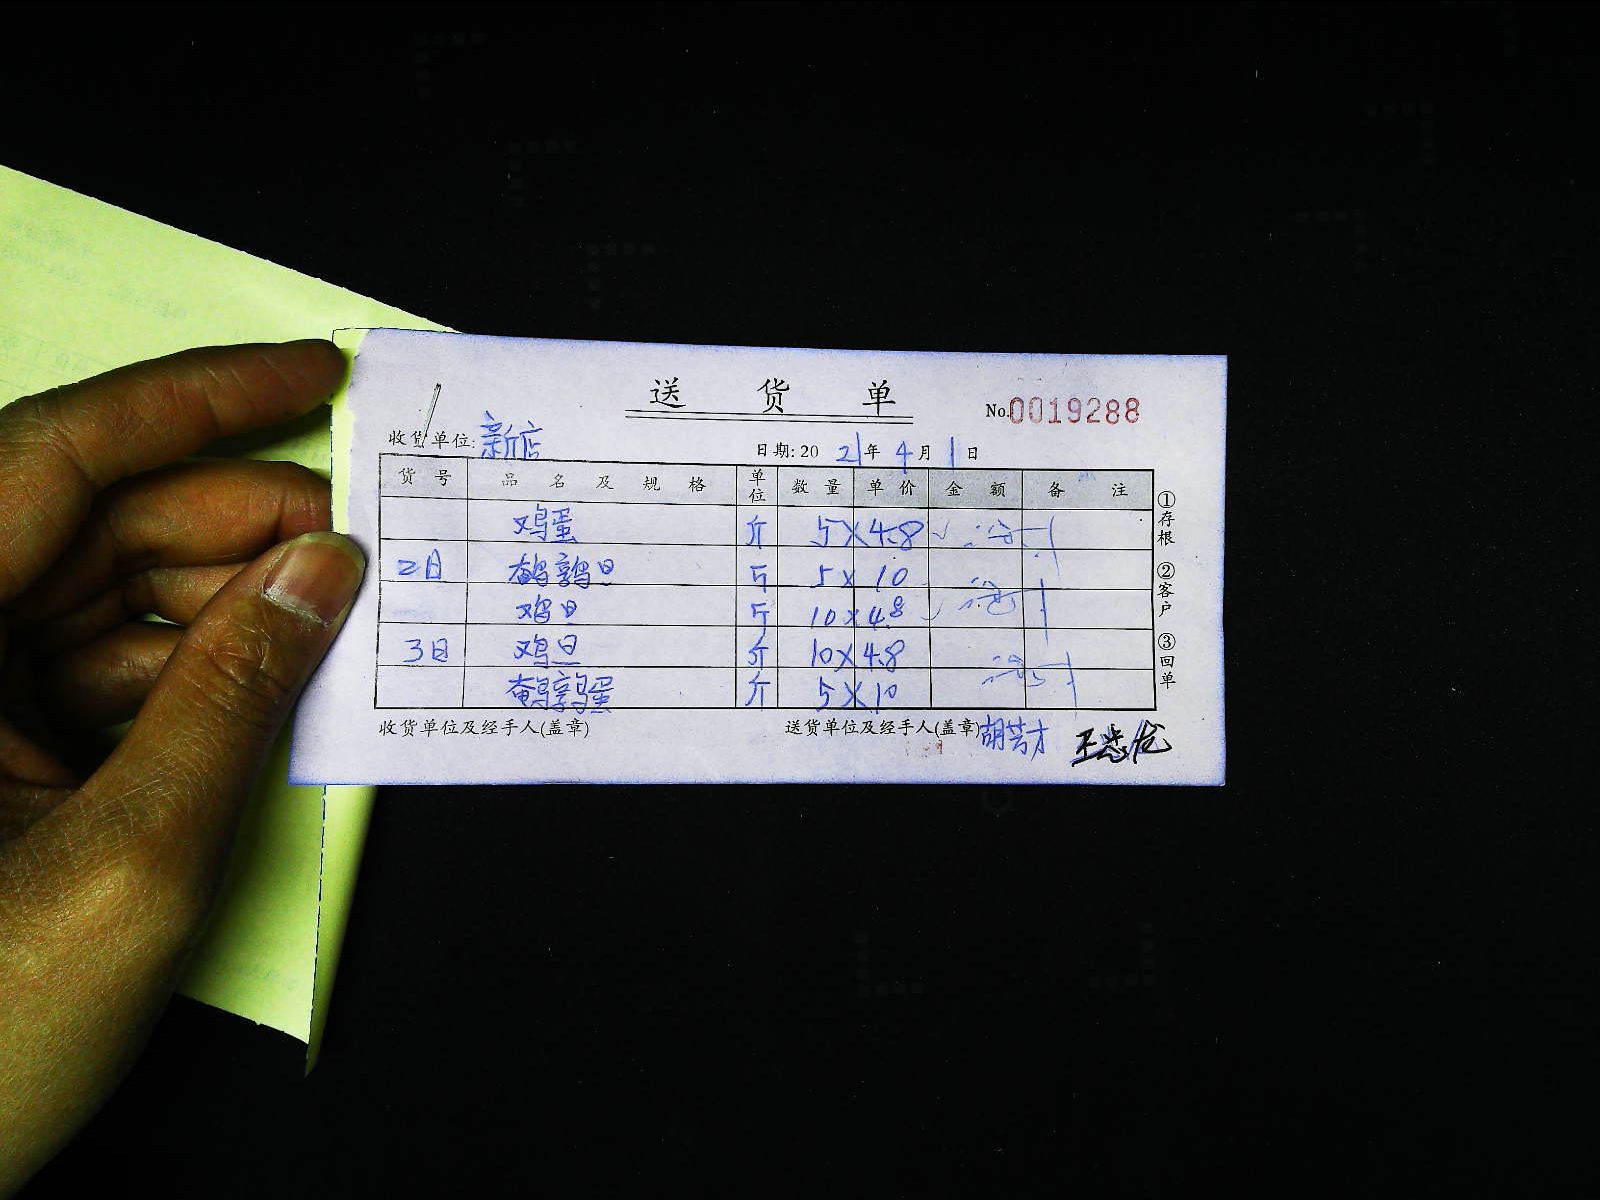 送 货 单
No.0019288
收货单位: 新店
日期: 2021年4月1日
货号 品名及规格 单位 数量 单价 金额 备注
鸡蛋 斤 5×4.8
2日 鹌鹑旦 斤 5×10
鸡旦 斤 10×4.8
3日 鸡旦 斤 10×4.8
鹌鹑蛋 斤 5×10
①存根 ②客户 ③回单
收货单位及经手人(盖章)
送货单位及经手人(盖章)